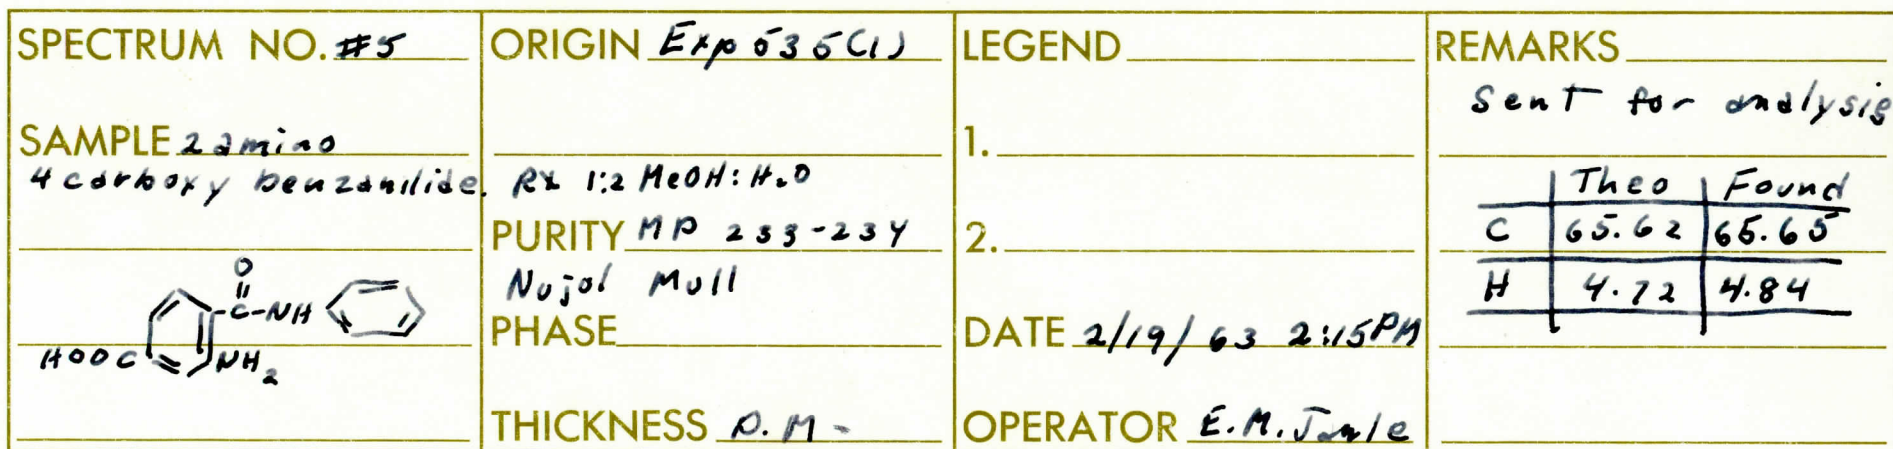 SPECTRUM NO. #5
SAMPLE 2 amino
4 carboxy benzanilide.
O
C-NH
HOOC NH2
ORIGIN Exp 535(1)
Rx 1:2 MeOH:H2O
PURITY MP 233-234
Nujol Mull
PHASE
THICKNESS D.M-
LEGEND
1.
2.
DATE 2/19/63 2:15PM
OPERATOR E.M.
REMARKS
Sent for analysis
Theo Found
C 65.62 65.65
H 4.72 4.84